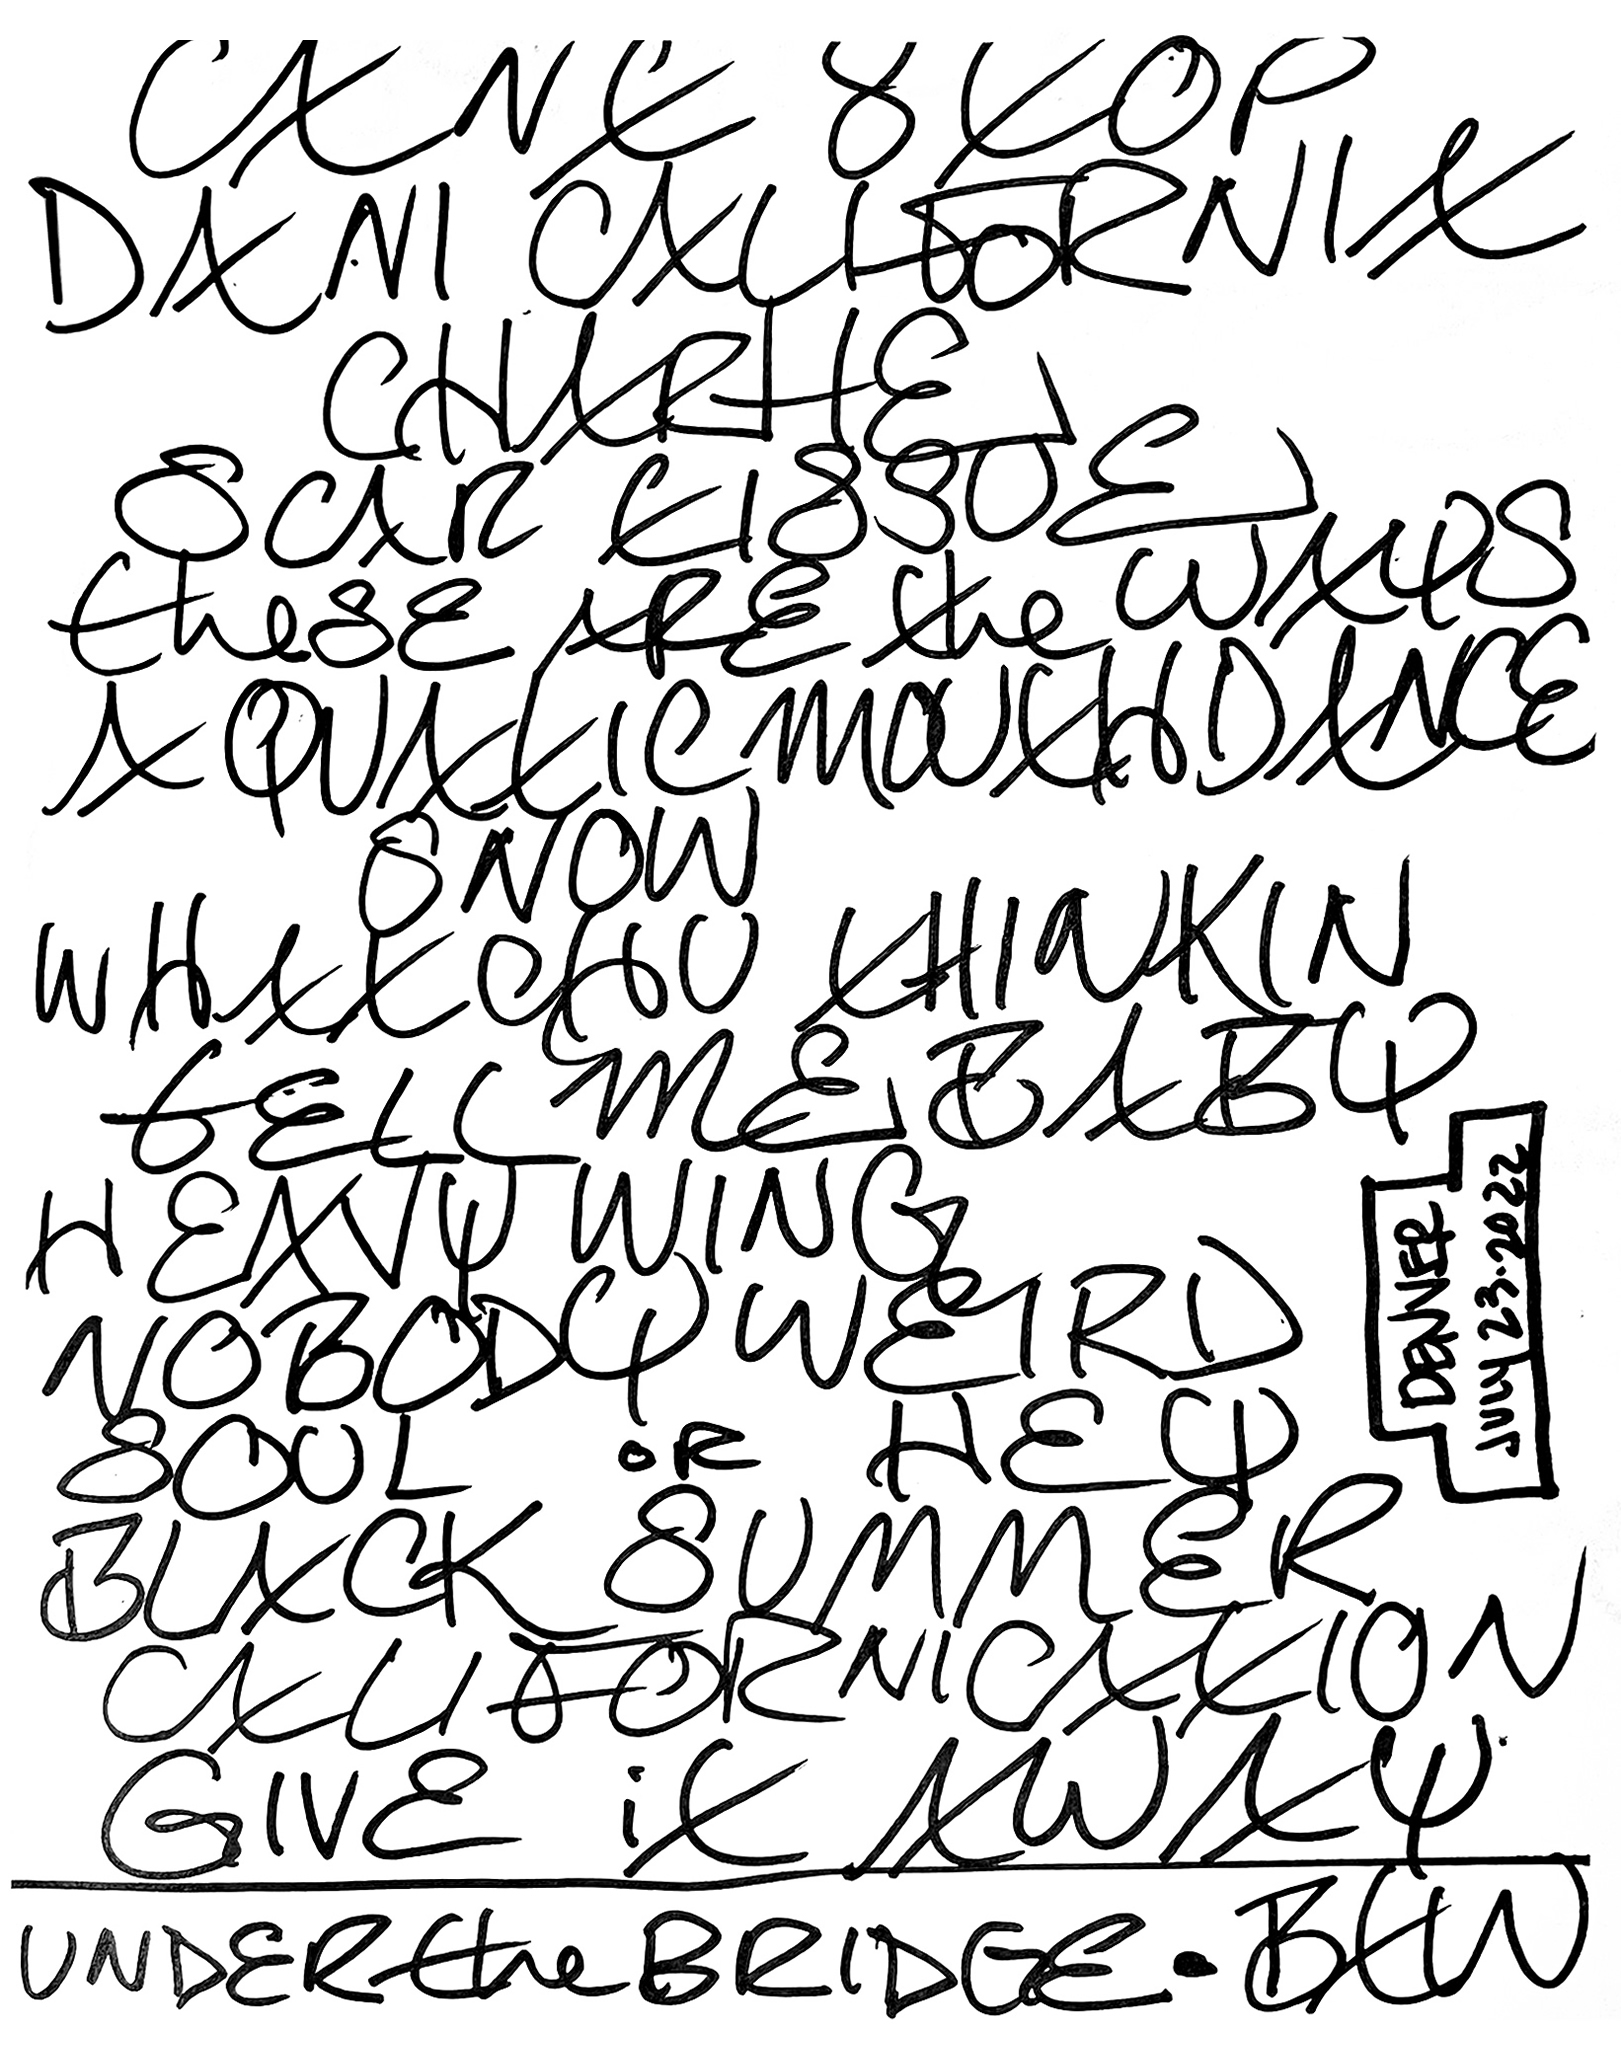 CAN'T STOP
DANI CALIFORNIA
CHARLIE
SCAR TISSUE
these ARE the WAYS
AQUATIC MOUTH DANCE
SNOW
WHATCHU THINKIN
tELL ME BABY
HEAVY WING
NOBODY WEIRD
SOUL OR HEY
BLACK SUMMER
CALIFORNICATION
GIVE it AWAY
UNDER the BRIDGE • BTW
DENVER
JULY 23·2022